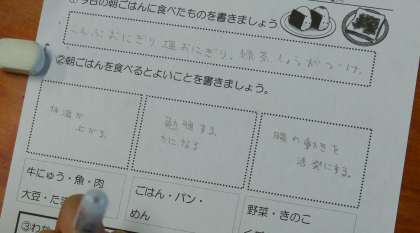 ①今日の朝ごはんに食べたものを書きましょう
こんぶおにぎり、塩おにぎり、緑茶、しょうがつけ
②朝ごはんを食べるとよいことを書きましょう。
体温が
上がる。
勉強する
力になる
腸の動きを
活発にする。
牛にゅう・魚・肉
大豆・たま
ごはん・パン・
めん
野菜・きのこ
③わ